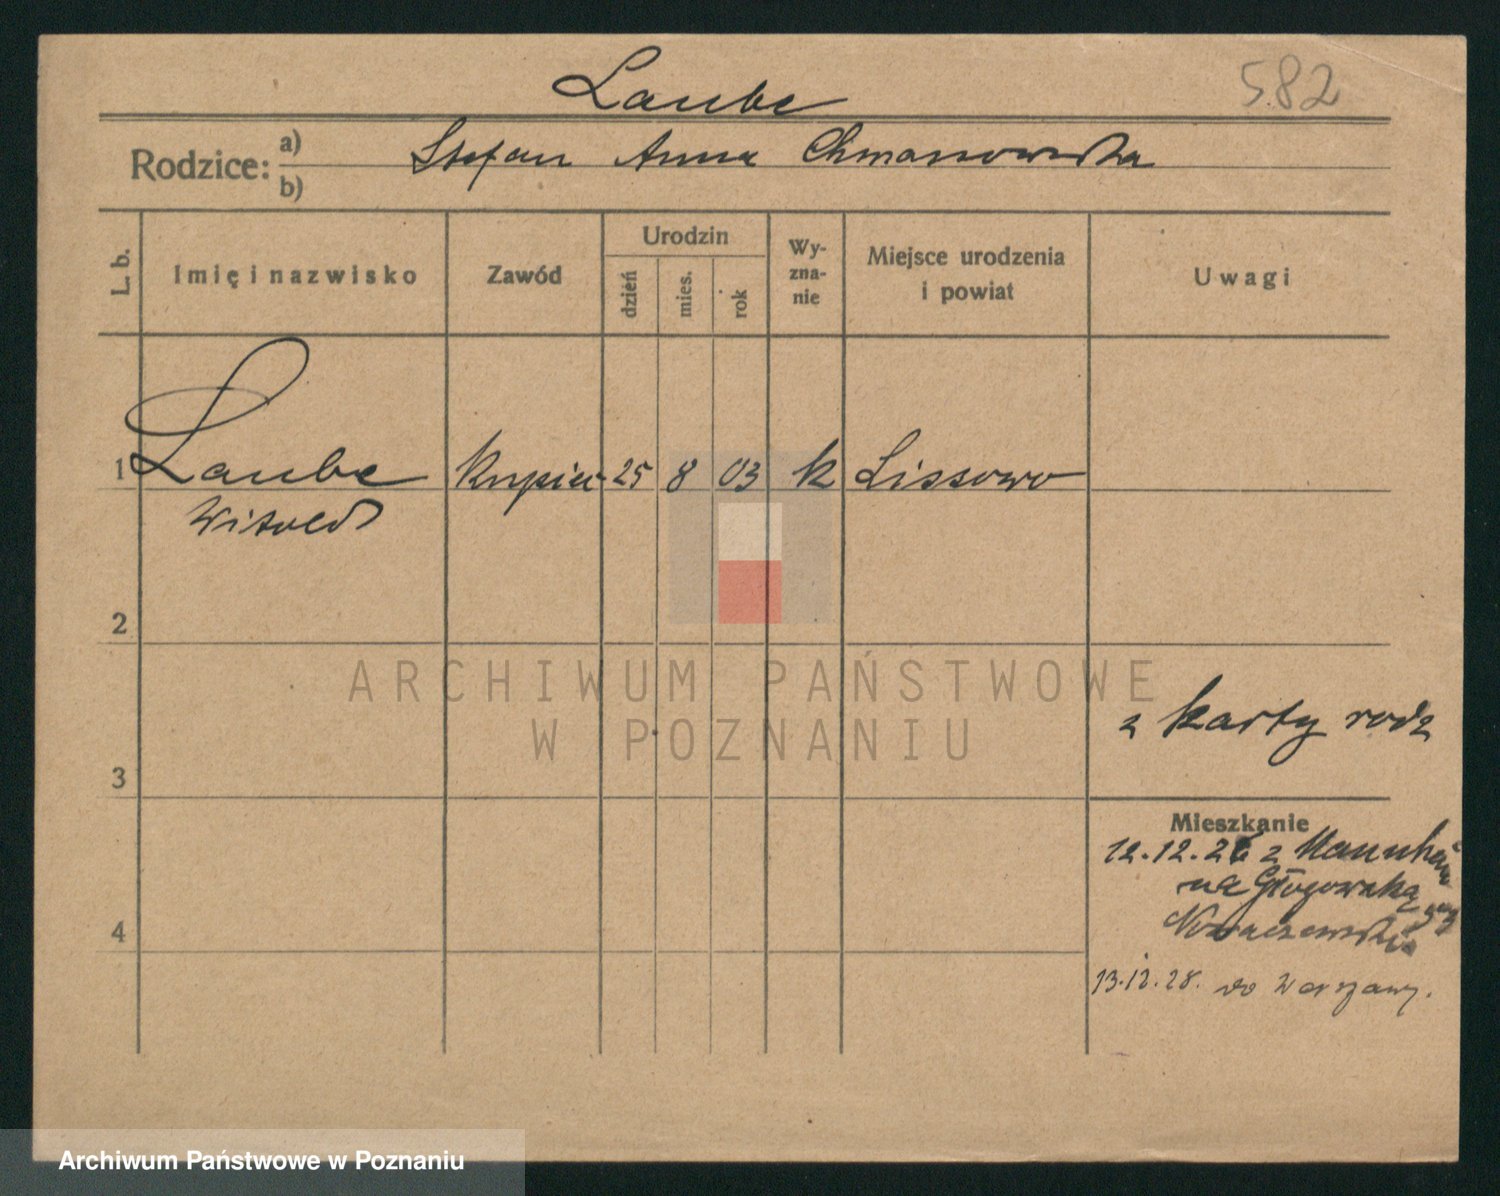 Laube
582
Rodzice: a) Stefan Anna Chmarzowska
b)
L. b. Imię i nazwisko Zawód Urodzin dzień mies. rok Wy-zna-nie Miejsce urodzenia i powiat Uwagi
1 Laube kupiec 25 8 03 k Lissowo
Witold
2
z karty rodz
3
Mieszkanie
12.12.26 z Mannheim
na Głogowską
13.12.28. do Warszawy.
4
ARCHIWUM PAŃSTWOWE
W POZNANIU
Archiwum Państwowe w Poznaniu